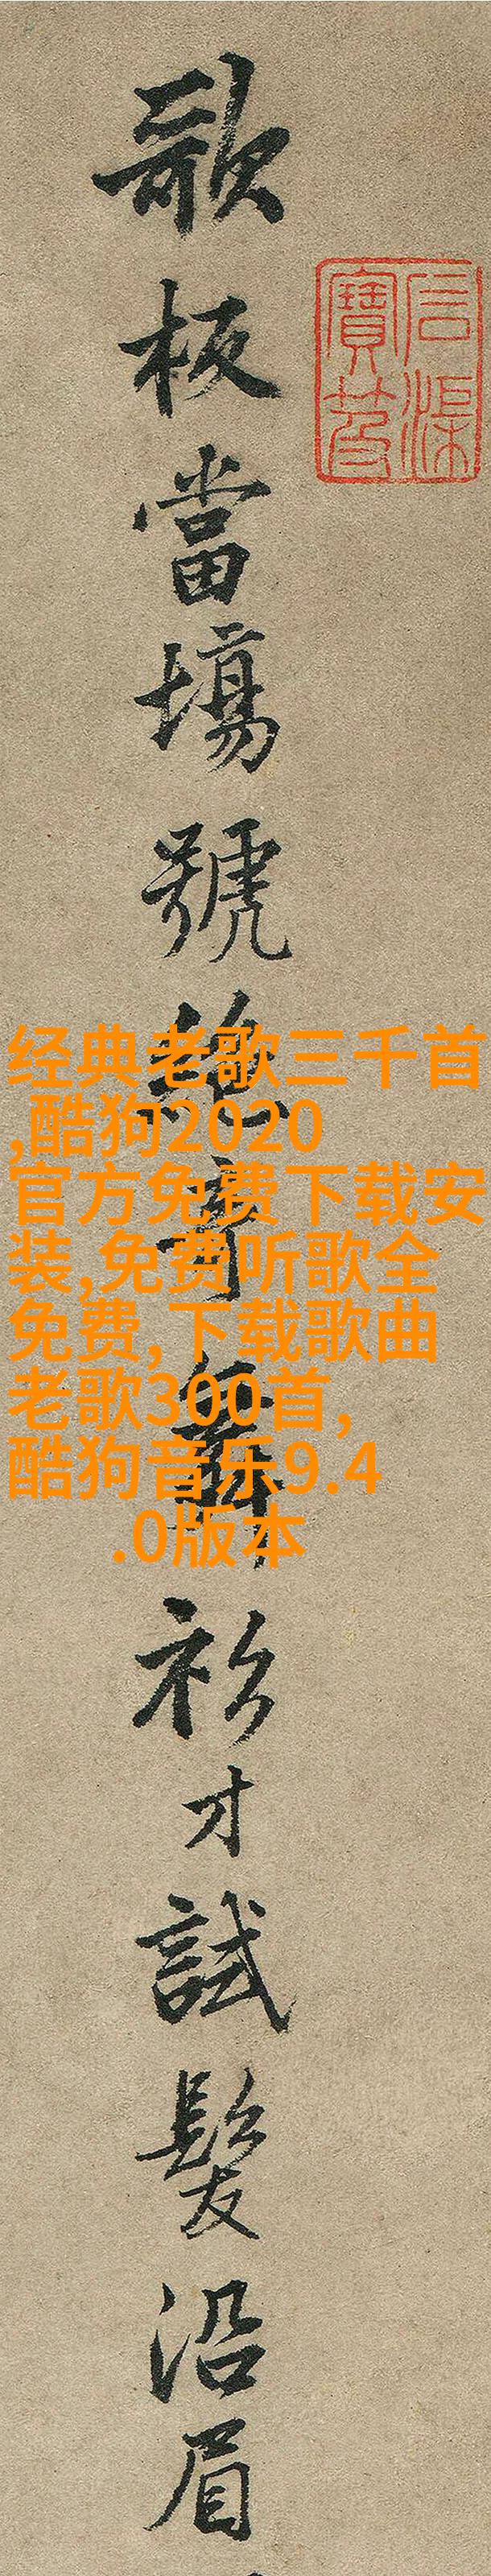 歌板當場號絕奇舞衫才試髮沿眉
石渠
寶笈
经典老歌三千首
,酷狗2020
官方免费下载安
装,免费听歌全
免费,下载歌曲
老歌300首,
酷狗音乐9.4
.0版本